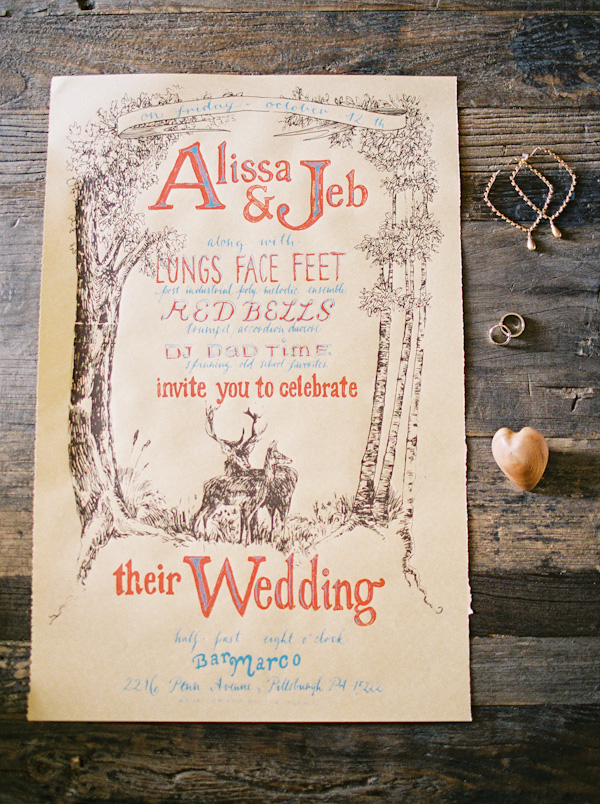 on friday - october 12 th
Alissa
& Jeb
along with
LUNGS FACE FEET
post industrial poly melodic ensemble
RED BELLS
trumpet, accordion dudes
DJ DAD TIME
spinning old school favorites
invite you to celebrate
their Wedding
half past eight o'clock
BarMarco
2216 Penn Avenue, Pittsburgh PA 15222